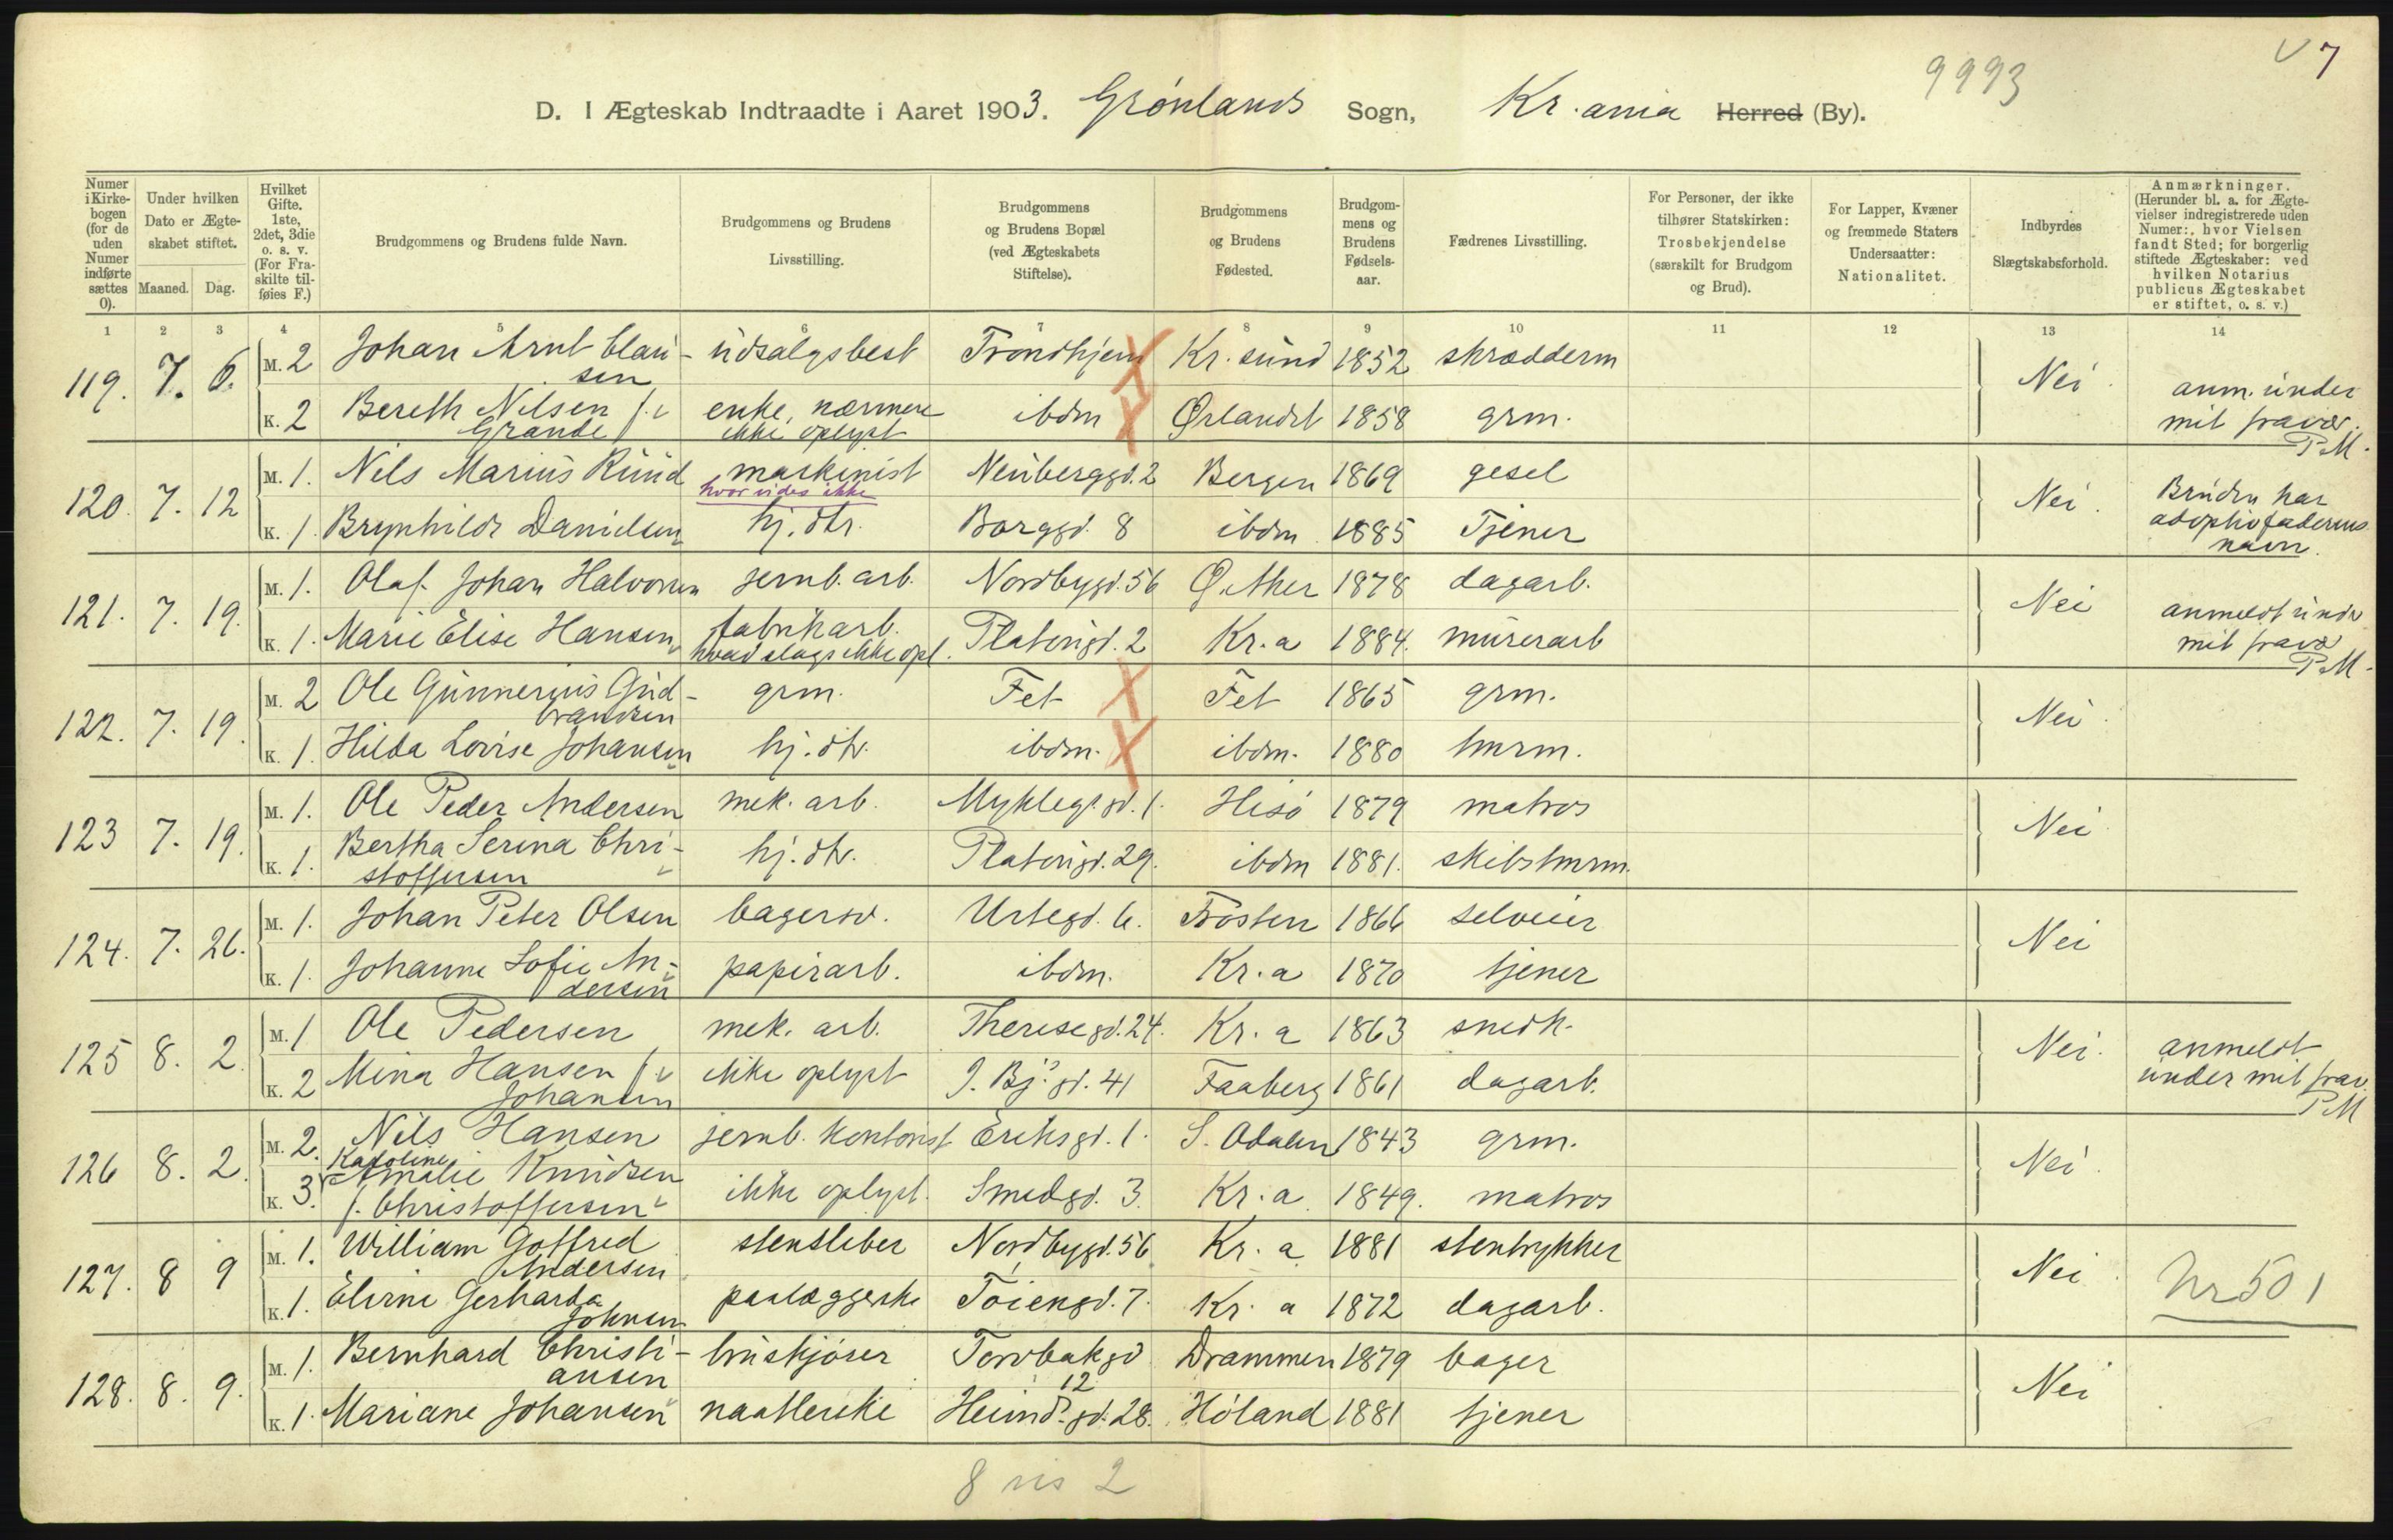 9993
V 7
D. I Ægteskab Indtraadte i Aaret 1903. Grönlands Sogn, Kr.ania Herred (By).
Numer i Kirkebogen (for de uden Numer indførte sættes 0).
Under hvilken Dato er Ægteskabet stiftet.
Maaned. Dag.
Hvilket Gifte. 1ste, 2det, 3die o. s. v. (For Fraskilte tilføies F.)
Brudgommens og Brudens fulde Navn.
Brudgommens og Brudens Livsstilling.
Brudgommens og Brudens Bopæl (ved Ægteskabets Stiftelse).
Brudgommens og Brudens Fødested.
Brudgommens og Brudens Fødselsaar.
Fædrenes Livsstilling.
For Personer, der ikke tilhører Statskirken: Trosbekjendelse (særskilt for Brudgom og Brud).
For Lapper, Kvæner og fremmede Staters Undersaatter: Nationalitet.
Indbyrdes Slægtskabsforhold.
Anmærkninger. (Herunder bl. a. for Ægtevielser indregistrerede uden Numer:, hvor Vielsen fandt Sted; for borgerlig stiftede Ægteskaber: ved hvilken Notarius publicus Ægteskabet er stiftet, o. s. v.)
1 2 3 4 5 6 7 8 9 10 11 12 13 14
119. 7. 6. M. 2 Johan Arnt Clausen udsalgsbest Trondhjem Kr. sund 1852 skrædderm Nei
K. 2 Bereth Nilsen f. Grande enke, nærmere ikke oplyst ibdm Ørlandet 1858 grm.
anm. under mit fravær. P.M.
120. 7. 12 M. 1. Nils Marius Ruud maskinist Neuberggd. 2 Bergen 1869 gesel Nei.
hvor vides ikke
K. 1. Brynhildr Danielsen hj. dtr. Borggd. 8 ibdm 1885 Tjener
Bruden har adoptivfaderens navn.
121. 7. 19. M. 1. Olaf Johan Halvorsen jernb. arb. Nordbygd. 56 Ø. Aker 1878 dagarb. Nei
K. 1. Marie Elise Hansen fabrikarb. hvad slags ikke opl. Platousgd. 2 Kr.a 1884. murerarb
anmeldt under mit fravær P.M.
122. 7. 19. M. 2 Ole Gunnerius Gudbrandsen grm. Fet Fet 1865 grm. Nei.
K. 1. Hilda Lovise Johansen hj. dtr. ibdm. ibdm. 1880 tmrm.
123 7. 19. M. 1. Ole Peder Andersen mek. arb. Myklegd. 1. Hisö 1879 matros Nei
K. 1. Bertha Serina Christoffersen hj. dtr. Platousgd. 29. ibdm 1881. skibstmrm.
124. 7. 26. M. 1. Johan Peter Olsen bagersv. Urtegd. 6. Frosten 1866 selveier Nei
K. 1. Johanne Sofie Andersen papirarb. ibdm. Kr.a 1870 tjener
125 8. 2. M. 1 Ole Pedersen mek. arb. Theresegd. 24. Kr.a 1863 snedk. Nei.
K. 2 Mina Hansen f. Johansen ikke oplyst J. Bj. gd. 41 Faaberg 1861 dagarb.
anmeldt under mit frav. P.M
126 8. 2. M. 2. Nils Hansen jernb. kontorist Eriksgd. 1. S. Odalen 1843 grm. Nei.
K. 3. Karoline Amalie Knudsen f. Christoffersen ikke oplyst. Smedgd. 3. Kr.a. 1849. matros
127. 8 9 M. 1. William Gotfred Andersen stensliber Nordbygd. 56 Kr.a 1881 stentrykker Nei.
K. 1. Elirne Gerharda Johnsen paalæggerske Töiengd. 7. Kr.a 1872 dagarb.
Nr 501
128. 8. 9. M. 1. Bernhard Christiansen huskjører Torvbakgd 12 Drammen 1879 bager Nei
K. 1. Mariane Johansen naatlerske Heimd. gd. 28. Höland 1881 tjener
8 vis 2